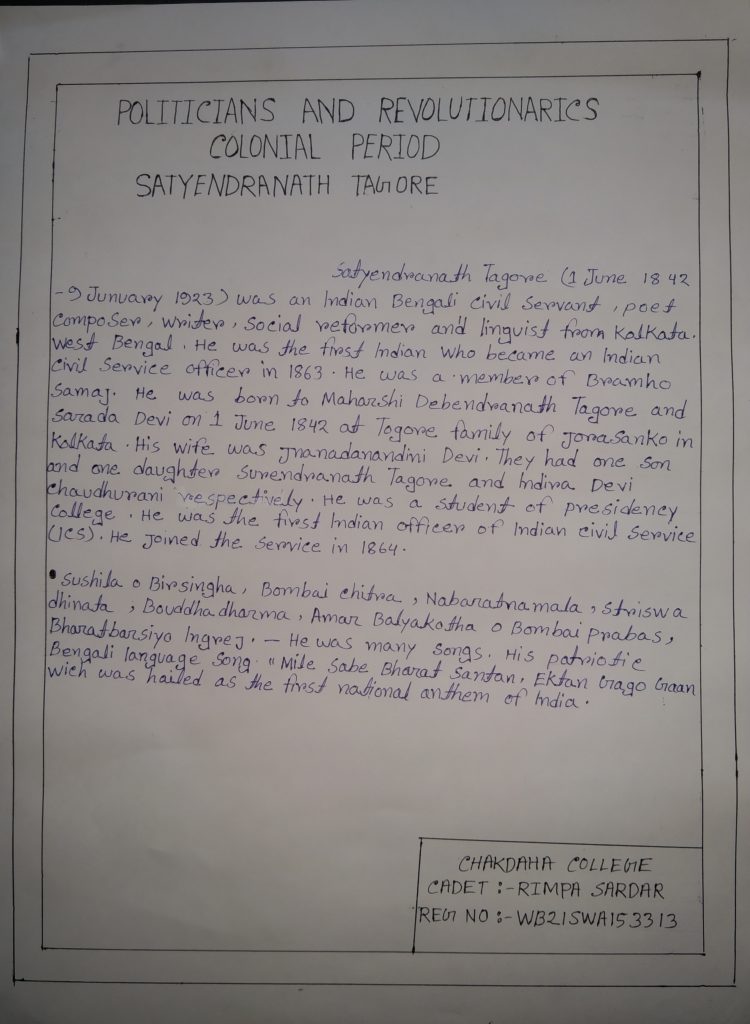 POLITICIANS AND REVOLUTIONARICS
COLONIAL PERIOD
SATYENDRANATH TAGORE
Satyendranath Tagore (1 June 1842
-9 Junuary 1923) was an Indian Bengali Civil Servant, poet
Composer, writer, Social reformer and linguist from Kolkata.
West Bengal. He was the first Indian who became an Indian
Civil Service officer in 1863. He was a member of Bramho
Samaj. He was born to Maharshi Debendranath Tagore and
Sarada Devi on 1 June 1842 at Togore family of Jorasanko in
Kolkata. His wife was Jnanadanandini Devi. They had one son
and one daughter Surendranath Tagore and Indira Devi
Chaudhurani respectively. He was a student of presidency
College. He was the first Indian officer of Indian civil Service
(ICS). He joined the Service in 1864.
• Sushila o Birsingha, Bombai chitra, Nabaratnamala, Striswa
dhinata, Bouddhadharma, Amar Balyakotha o Bombai prabas,
Bharatbarsiyo Ingrej. — He was many songs. His patriotic
Bengali language Song. "Mile Sabe Bharat Santan, Ektan Gago Gaan
wich was hailed as the first national anthem of India.
CHAKDAHA COLLEGE
CADET :- RIMPA SARDAR
REG NO :- WB21SWA153313